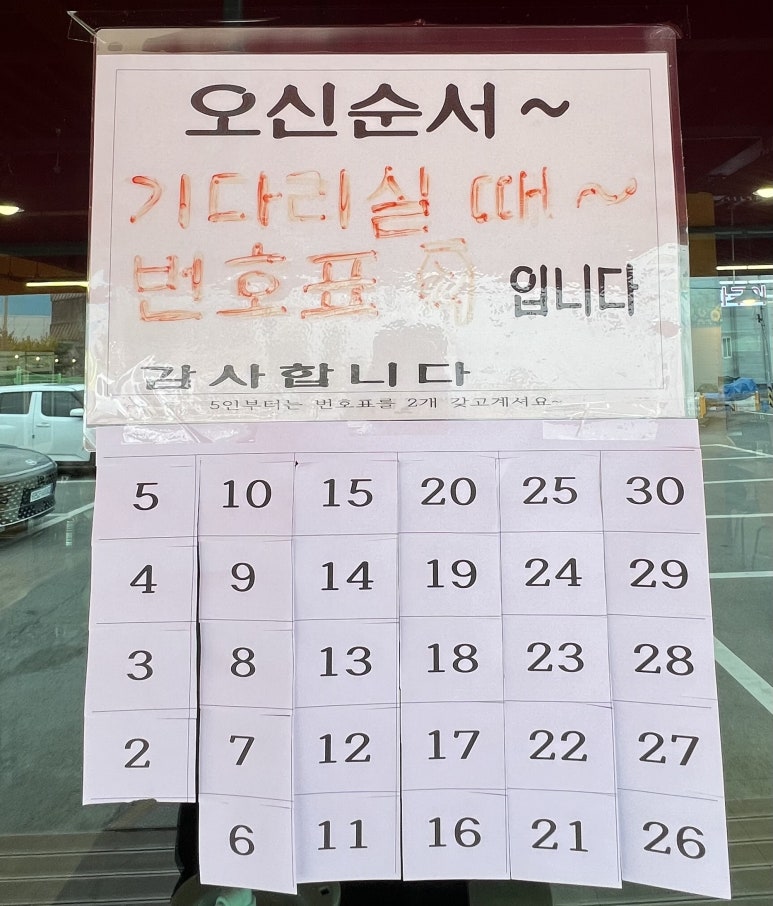 오신순서~
기다리실 때~
번호표 입니다
감사합니다
5인부터는 번호표를 2개 갖고계셔요~
5 10 15 20 25 30
4 9 14 19 24 29
3 8 13 18 23 28
2 7 12 17 22 27
6 11 16 21 26